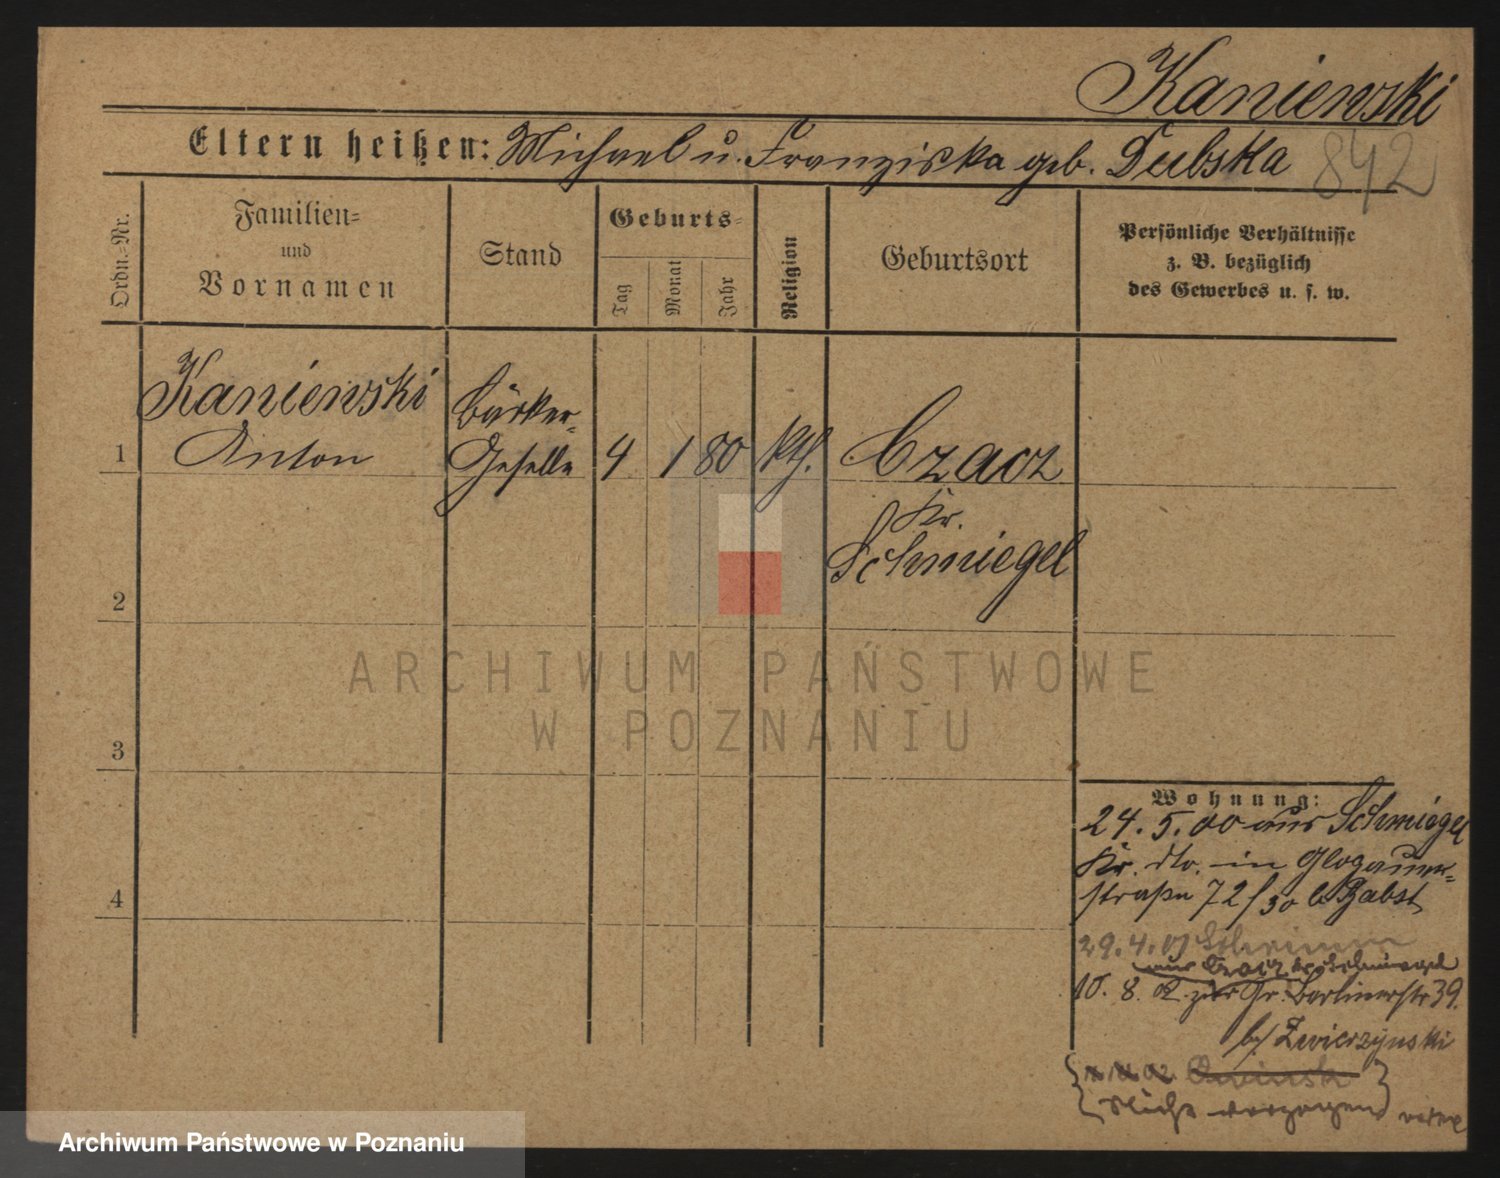 Kaniewski
Eltern heißen: Michael u. Franziska geb. Dubska
842
Ordn.-Nr.
Familien-
und
Vornamen
Stand
Geburts-
Tag
Monat
Jahr
Religion
Geburtsort
Persönliche Verhältnisse
z. B. bezüglich
des Gewerbes u. s. w.
1
Kaniewski
Anton
Bäcker-
Geselle
4
1
80
kth.
Czacz
Kr.
Schmiegel
2
3
4
ARCHIWUM PAŃSTWOWE
W POZNANIU
Wohnung:
24. 5. 00 aus Schmiegel
Kr. dto. in Glogauer-
straße 72/30 b Pabst
29. 4. 01 Schrimm
aus Czacz Kr. Schmiegel
10. 8. 02. zur Gr. Berlinerstr 39.
b/ Zwierzynski
02 Owinsk
Nicht verzogen
Archiwum Państwowe w Poznaniu